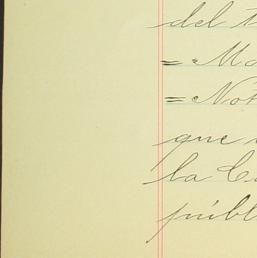 del t
=Ma
=Not
que
la C
públ